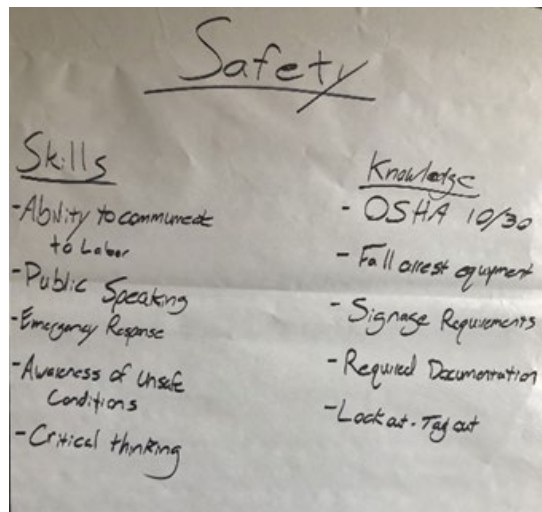 Safety
Skills
-Ability to communicate
to Labor
-Public Speaking
-Emergency Response
-Awareness of Unsafe
Conditions
-Critical thinking
Knowledge
- OSHA 10/30
- Fall arrest equipment
- Signage Requirements
- Required Documentation
- Lock out - Tag out